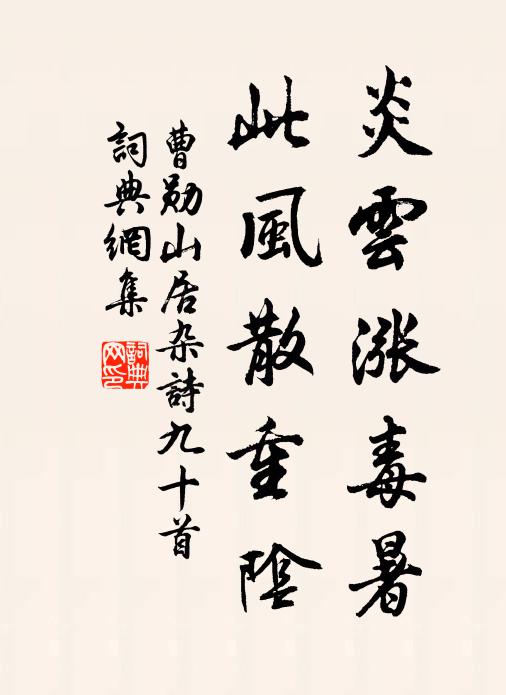 炎雲漲毒暑
此風散重陰
曹勛山居杂詩九十首
詞典網集
詞典网印